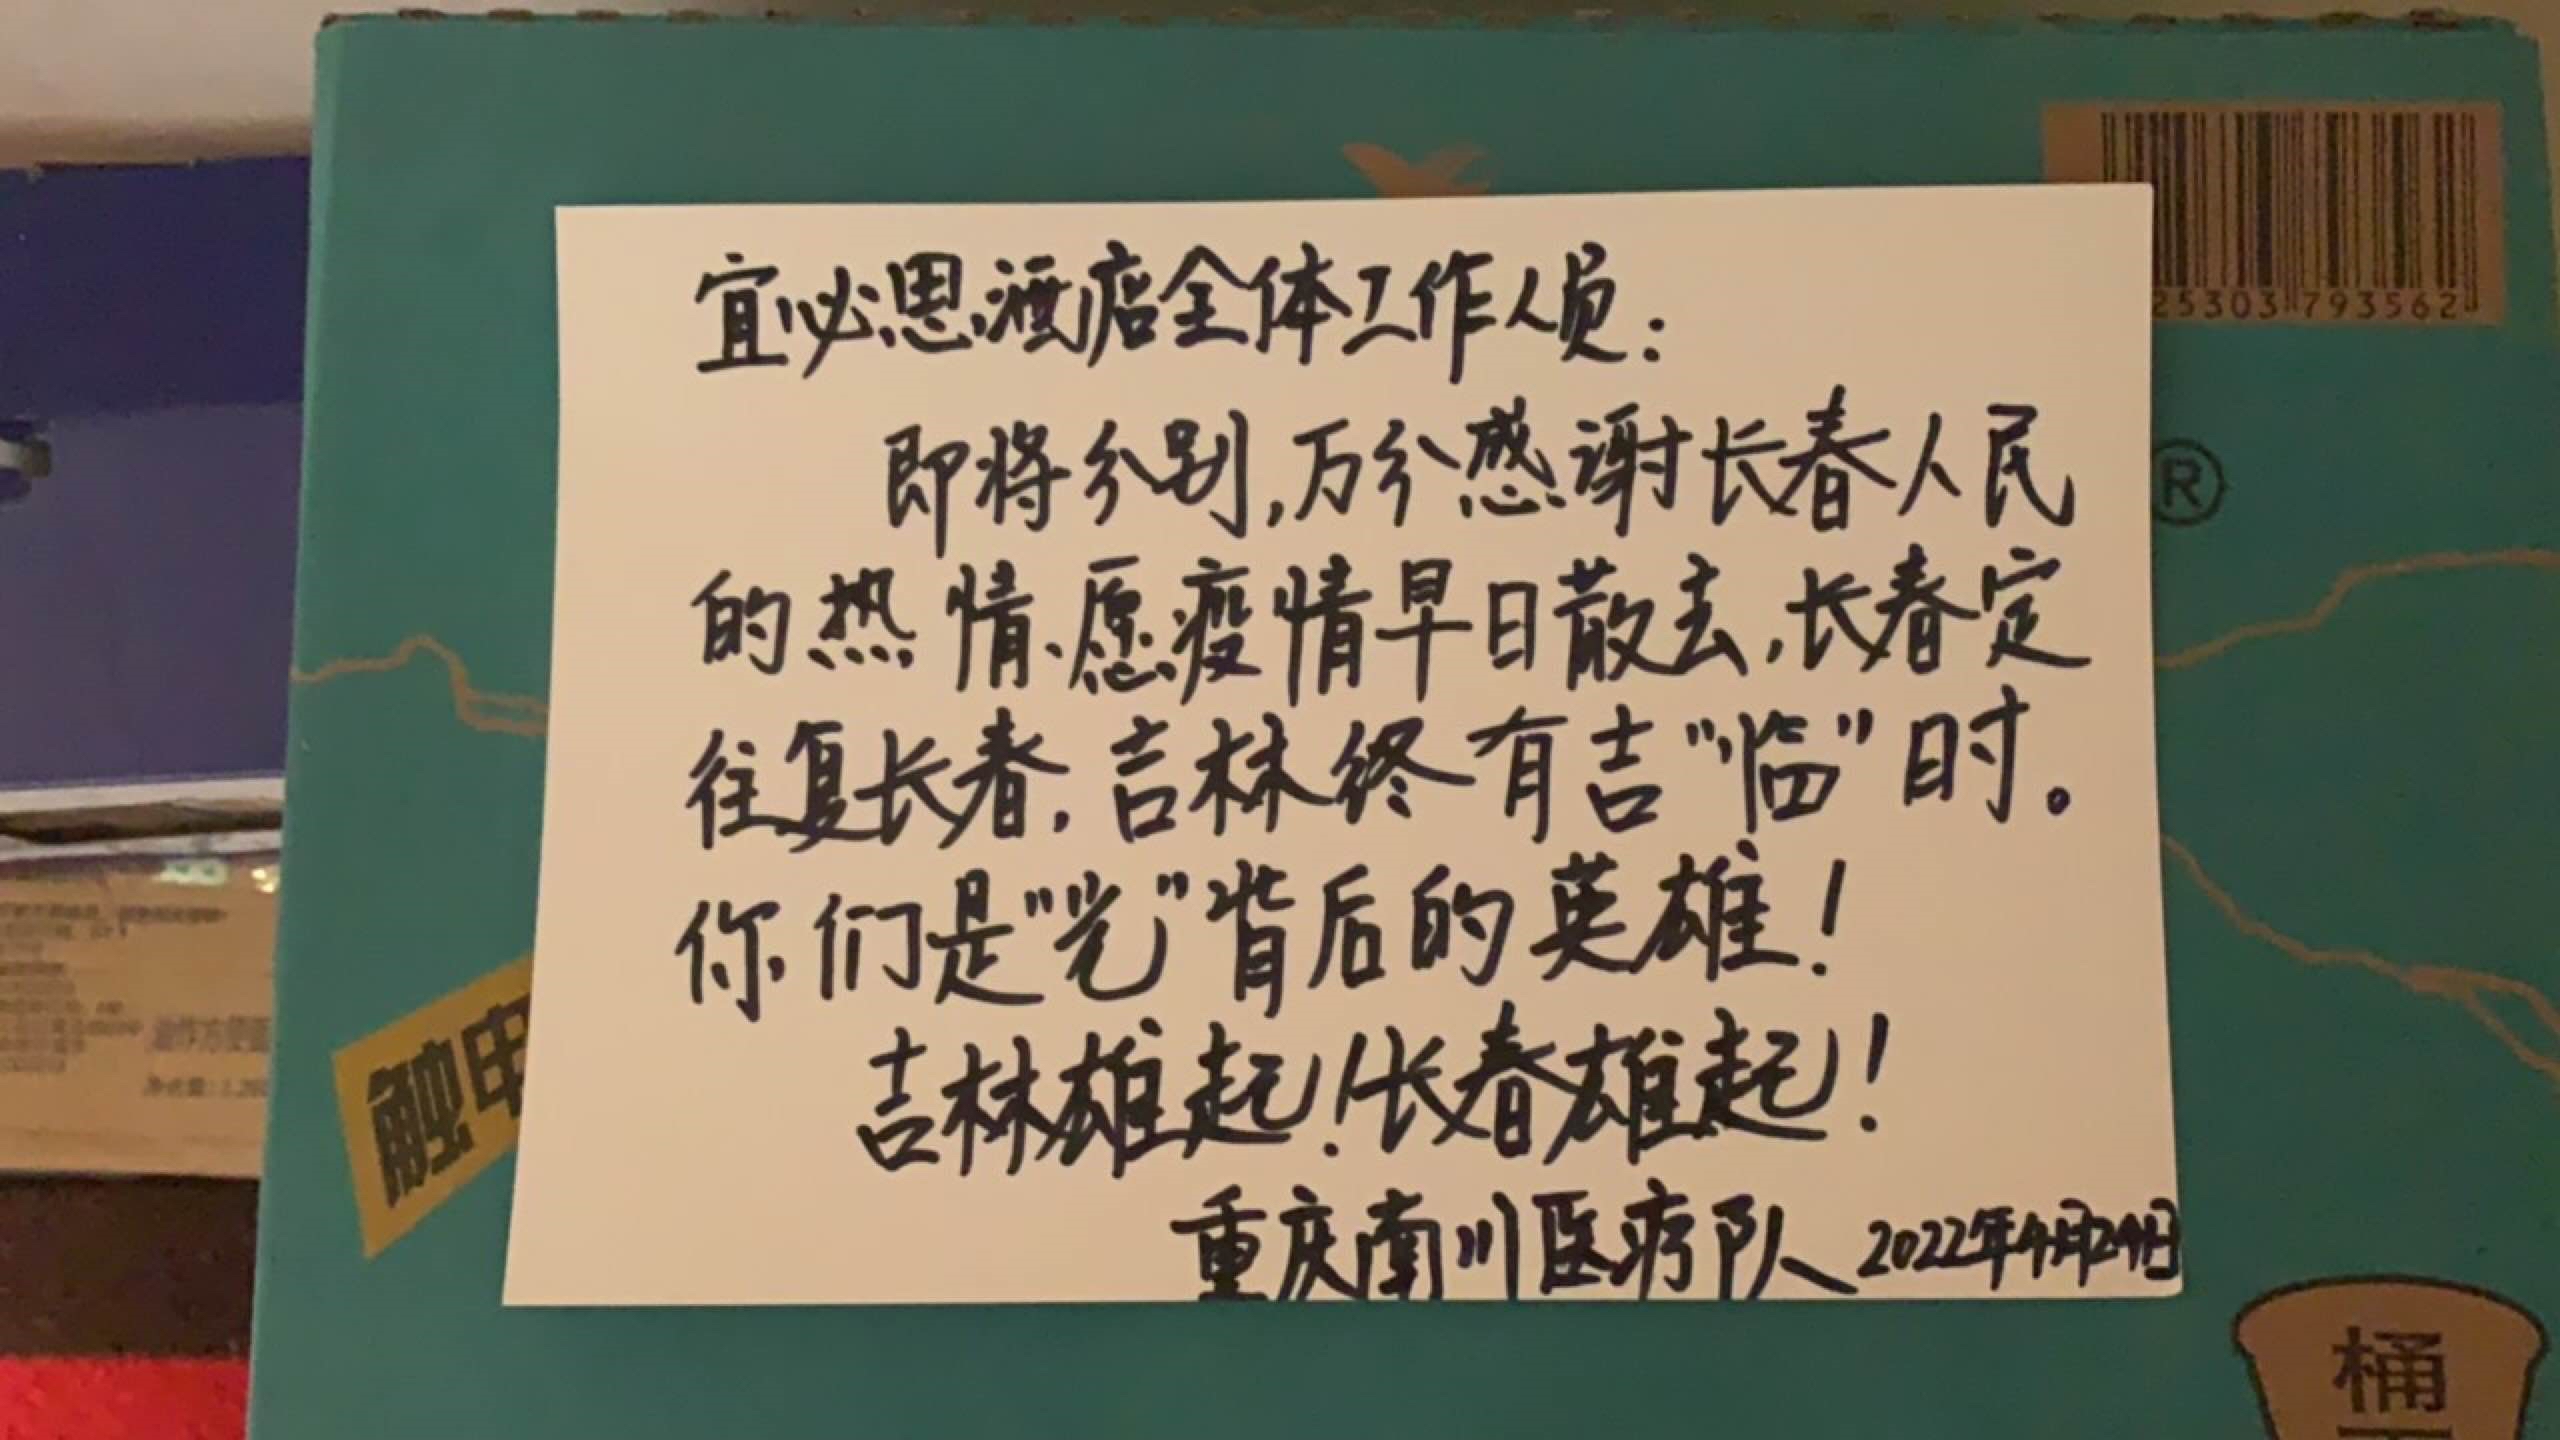 宜必思酒店全体工作人员：
即将分别，万分感谢长春人民
的热情、愿疫情早日散去，长春定
往复长春，吉林终有吉“临”时。
你们是“光”背后的英雄！
吉林雄起！长春雄起！
重庆南川医疗队 2022年4月24日
25303 793562
®
触电
桶